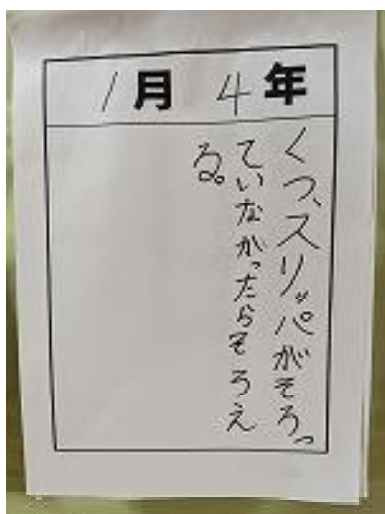 1月 4年
くつ、スリッパがそろっ
ていなかったらそろえ
る。